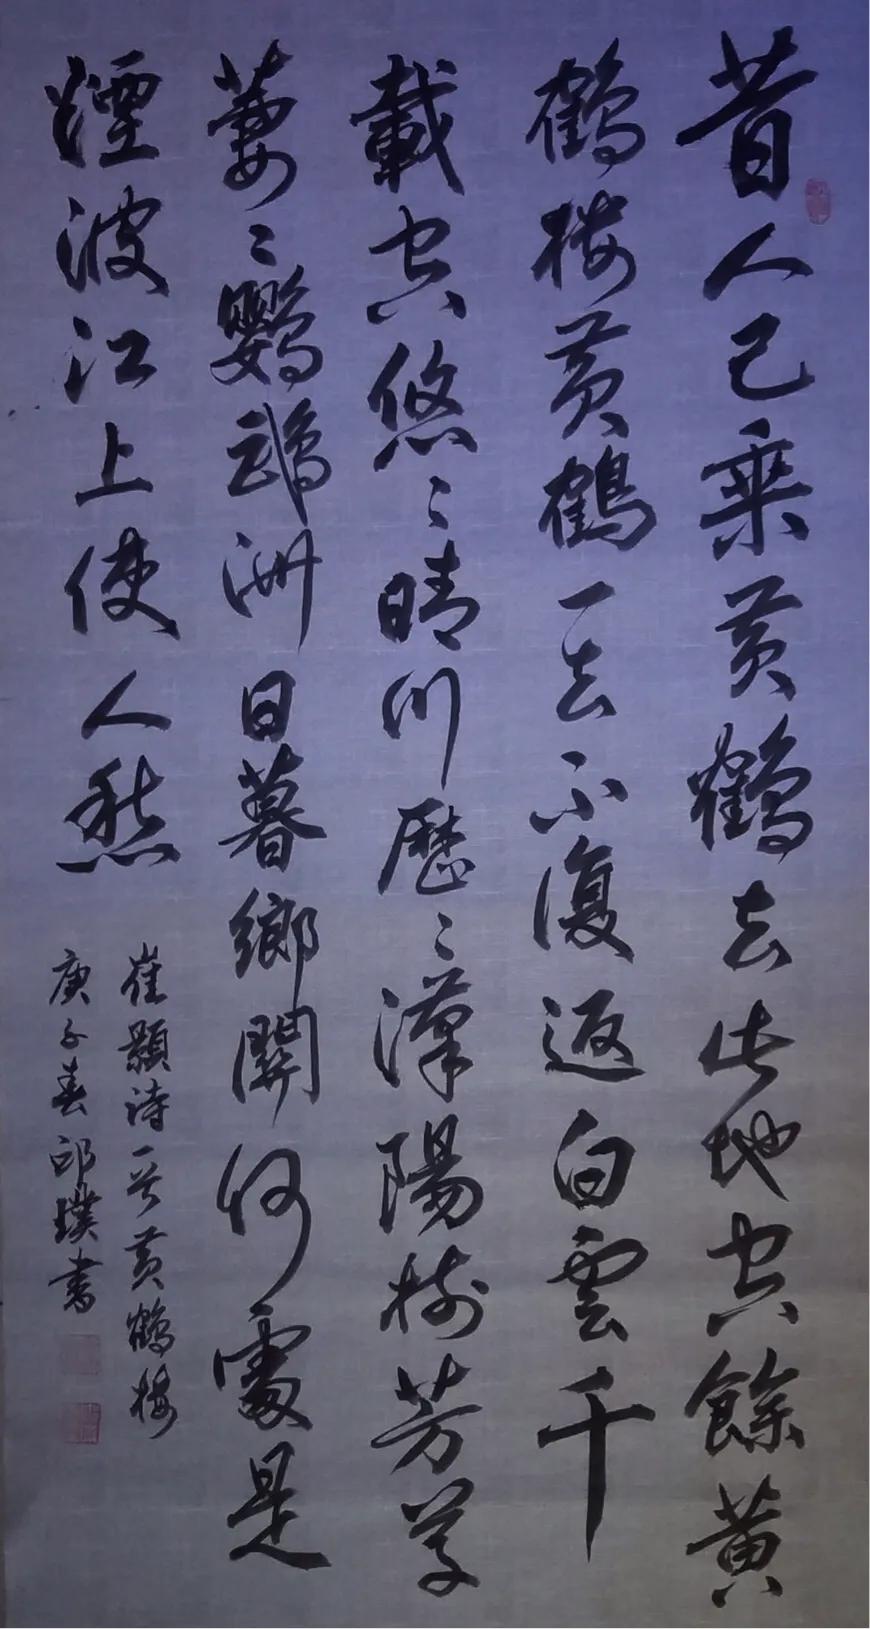 昔人已乘黃鶴去此地空餘黃
鶴樓黃鶴一去不復返白雲千
載空悠〻晴川歷〻漢陽樹芳草
萋〻鸚鵡洲日暮鄉關何處是
煙波江上使人愁
崔顥詩一首黃鶴樓
庚子春邱璞書